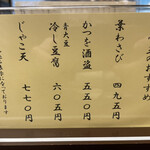 のおすすめ
葉わさび 四九五
かつを酒盗 五五〇円
青大豆
冷し豆腐 六〇五円
じゃこ天 七七〇円